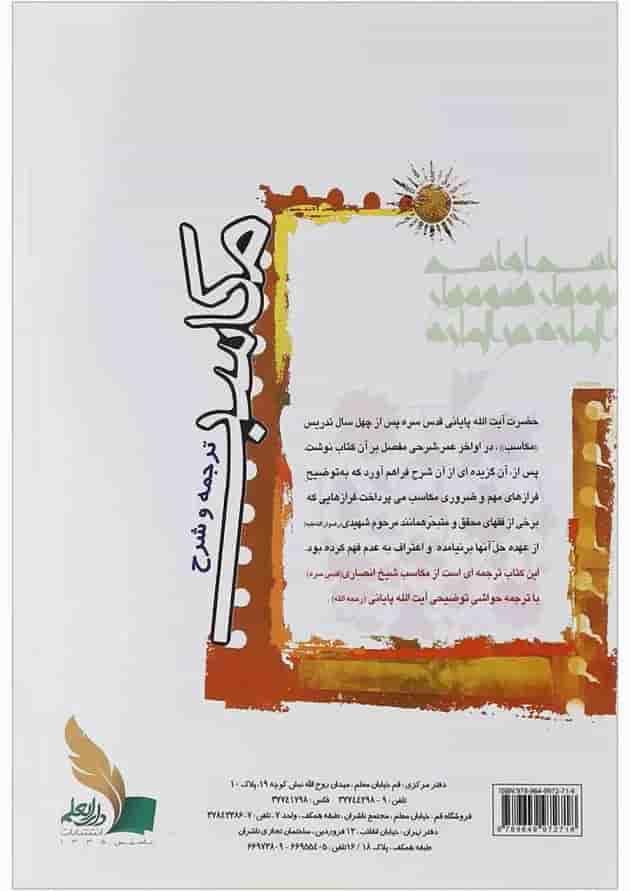 مکاسب
ترجمه و شرح
حضرت آیت الله پایانی قدس سره پس از چهل سال تدریس
«مکاسب»، در اواخر عمر، شرحی مفصل بر آن کتاب نوشت.
پس از، آن گزیده ای از آن شرح فراهم آورد که به توضیح
فرازهای مهم و ضروری مکاسب می پرداخت فرازهایی که
برخی از فقهای محقق و متبحر همانند مرحوم شهیدی
از عهده حل آنها برنیامده، و اعتراف به عدم فهم کرده بود.
این کتاب ترجمه ای است از مکاسب شیخ انصاری (قدس سره)
با ترجمه حواشی توضیحی آیت الله پایانی (رحمه الله).
دارالعلم
انتشارات
تاسیس ۱۳۳۵
دفتر مرکزی: قم خیابان معلم، میدان روح الله نبش کوچه ۱۹، پلاک ۱۰
تلفن: ۹ - ۳۷۷۴۴۲۹۸ فکس: ۳۷۷۴۱۷۹۸
فروشگاه قم: خیابان معلم، مجتمع ناشران، طبقه همکف، واحد ۷، تلفن: ۷-۳۷۸۴۲۳۸۶
دفتر تهران: خیابان انقلاب، ۱۲ فروردین، ساختمان تجاری ناشران
طبقه همکف، پلاک ۱۸ / ۱۶ تلفن: ۶۶۹۵۵۴۰۵ - ۶۶۹۷۳۸۰۹
ISBN: 978-964-9972-71-8
9789649972718